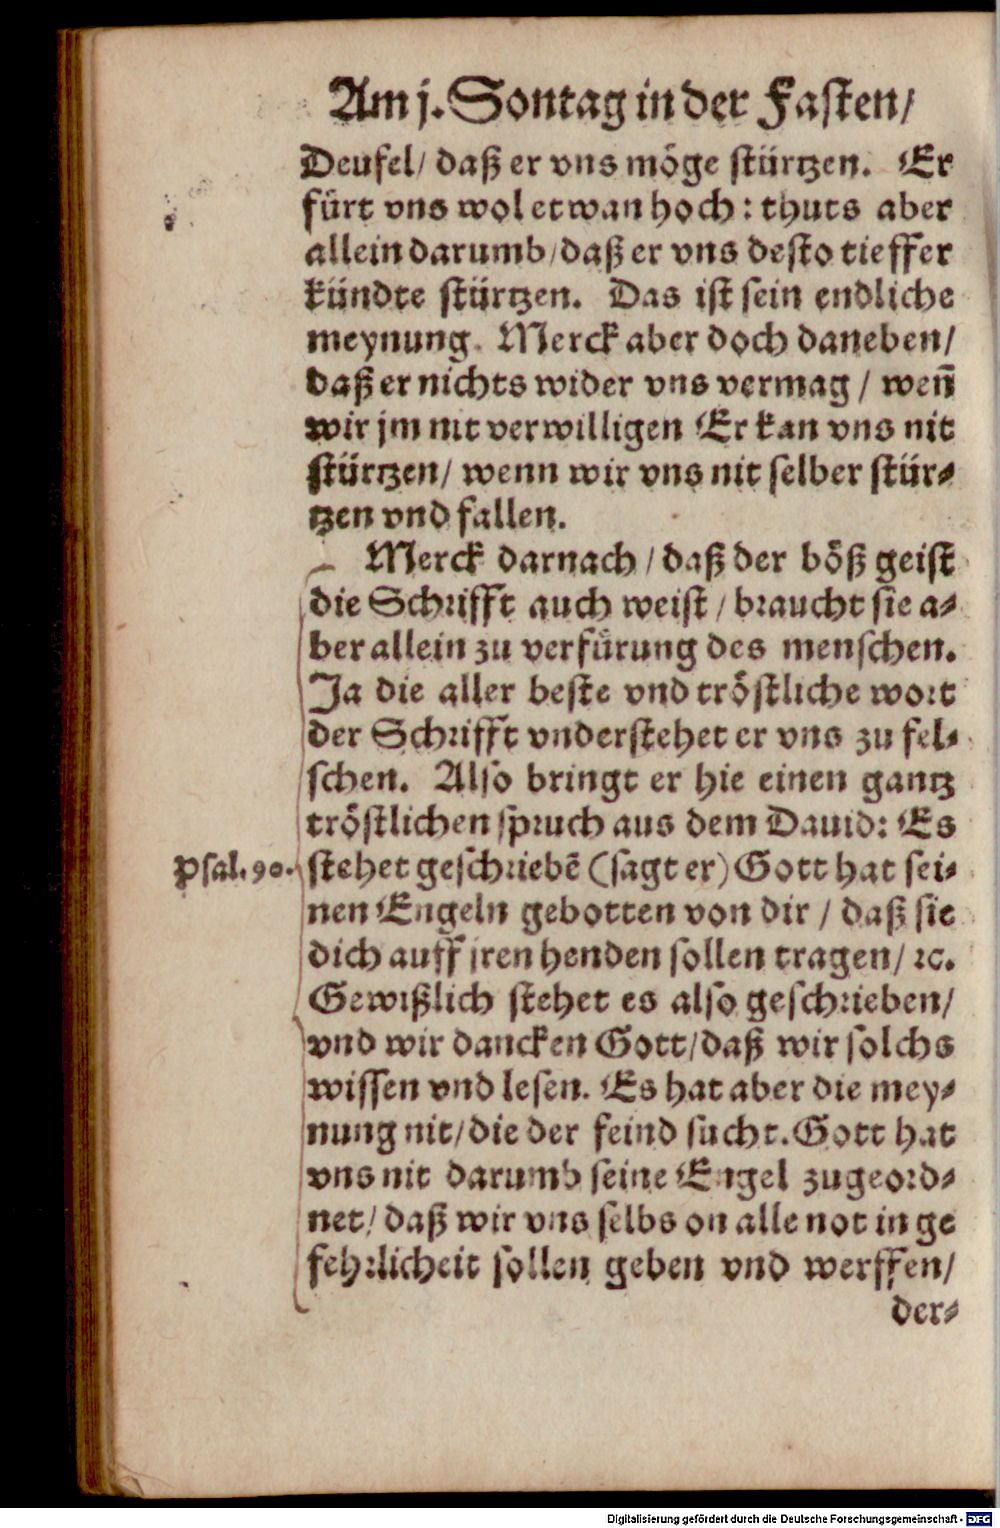 Am j. Sontag in der Fasten/
Deufel/ daß er vns möge stürtzen. Er
fürt vns wol etwan hoch: thuts aber
allein darumb/ daß er vns desto tieffer
kündte stürtzen. Das ist sein endliche
meynung. Merck aber doch daneben/
daß er nichts wider vns vermag / weñ
wir jm nit verwilligen Er kan vns nit
stürtzen/ wenn wir vns nit selber stür⸗
tzen vnd fallen.
Merck darnach / daß der böß geist
die Schrifft auch weist / braucht sie a⸗
ber allein zu verfürung des menschen.
Ja die aller beste vnd tröstliche wort
der Schrifft vnderstehet er vns zu fel⸗
schen. Also bringt er hie einen gantz
tröstlichen spruch aus dem Dauid: Es
Psal. 90. stehet geschriebē (sagt er) Gott hat sei⸗
nen Engeln gebotten von dir / daß sie
dich auff jren henden sollen tragen/ ꝛc.
Gewißlich stehet es also geschrieben/
vnd wir dancken Gott/ daß wir solchs
wissen vnd lesen. Es hat aber die mey⸗
nung nit/ die der feind sucht. Gott hat
vns nit darumb seine Engel zugeord⸗
net/ daß wir vns selbs on alle not in ge
fehrlicheit sollen geben vnd werffen/
der⸗
Digitalisierung gefördert durch die Deutsche Forschungsgemeinschaft - DFG